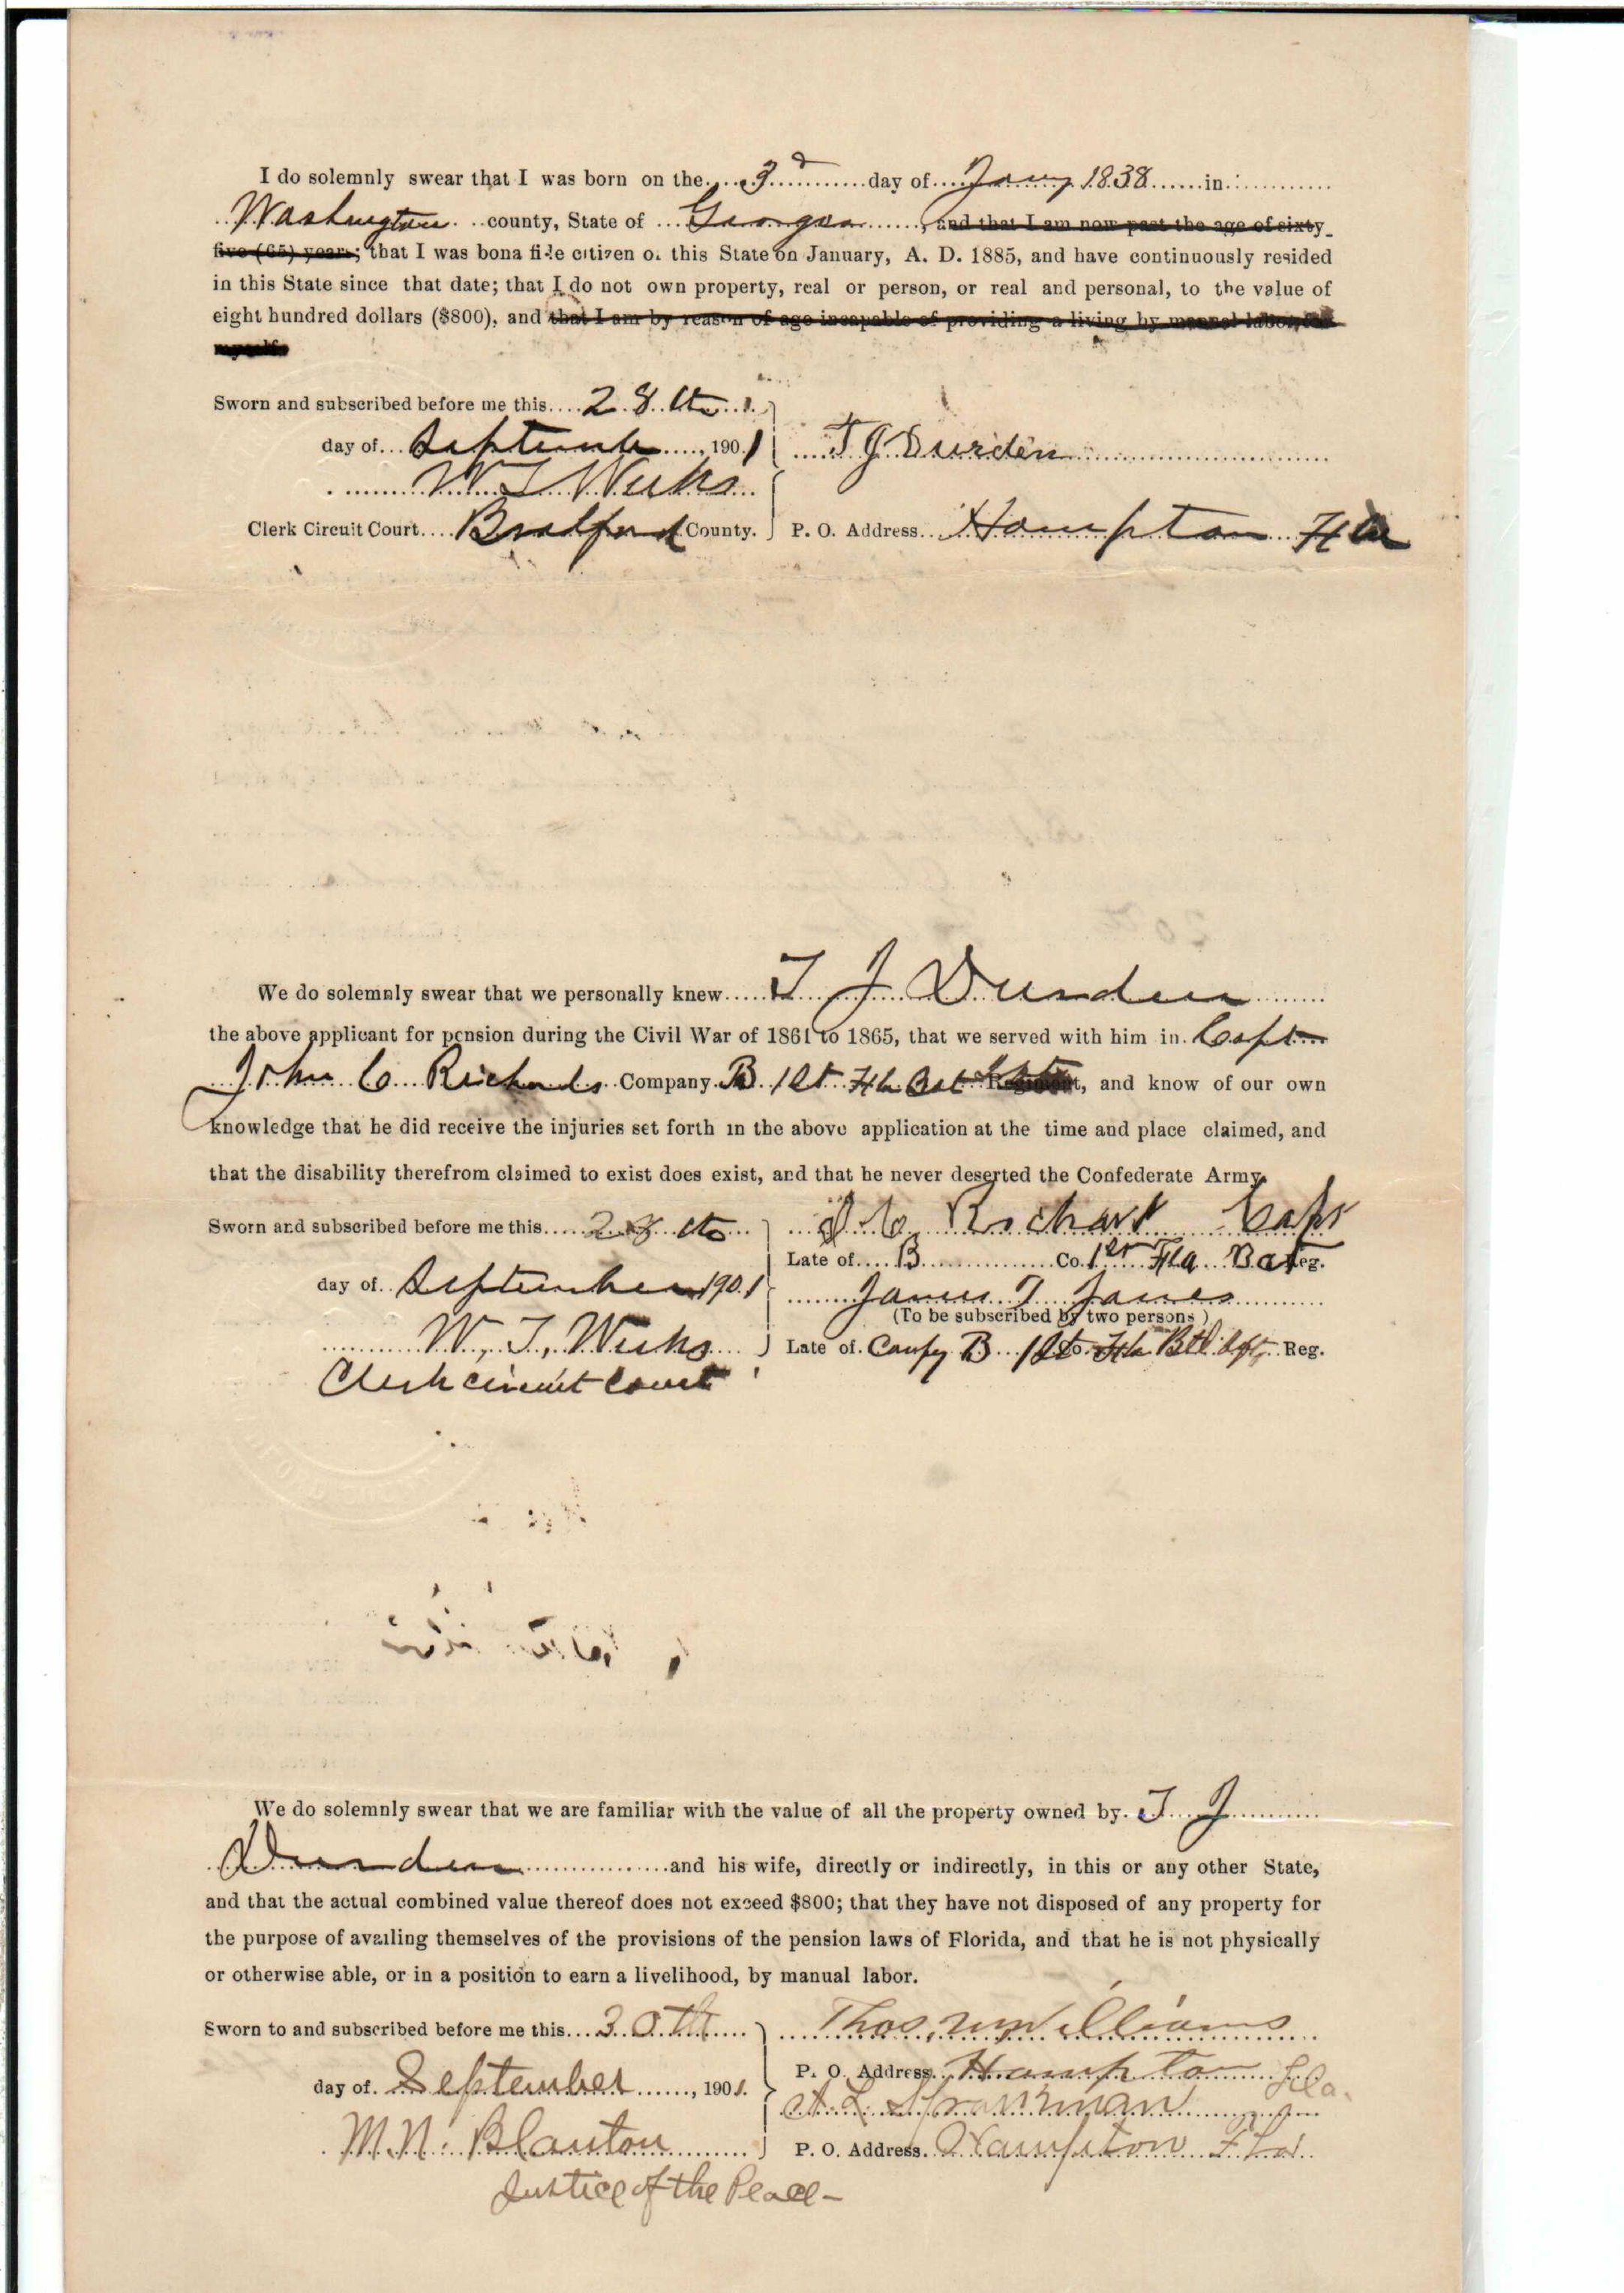 I do solemnly swear that I was born on the 3d day of Jany 1838 in
Washington county, State of Georgia, and that I am now past the age of sixty
five (65) years; that I was bona fide citizen of this State on January, A. D. 1885, and have continuously resided
in this State since that date; that I do not own property, real or person, or real and personal, to the value of
eight hundred dollars ($800), and that I am by reason of age incapable of providing a living by manual labor, for
myself.
Sworn and subscribed before me this 28th
day of September, 1901 T J Durden
W T Weeks
Clerk Circuit Court Bradford County. P. O. Address Hampton Fla
We do solemnly swear that we personally knew T J Durden
the above applicant for pension during the Civil War of 1861 to 1865, that we served with him in Capt
John C Richards Company B 1st Fla Bat Regiment, and know of our own
knowledge that he did receive the injuries set forth in the above application at the time and place claimed, and
that the disability therefrom claimed to exist does exist, and that he never deserted the Confederate Army.
Sworn and subscribed before me this 28th J C Richard Capt
Late of B Co. 1st Fla Bat Reg.
day of September 1901 James T Jones
(To be subscribed by two persons)
W. T. Weeks Late of Compy B 1st Co. Fla Btl Reg.
Clerk circuit Court
We do solemnly swear that we are familiar with the value of all the property owned by T J
Durden and his wife, directly or indirectly, in this or any other State,
and that the actual combined value thereof does not exceed $800; that they have not disposed of any property for
the purpose of availing themselves of the provisions of the pension laws of Florida, and that he is not physically
or otherwise able, or in a position to earn a livelihood, by manual labor.
Sworn to and subscribed before me this 30th Thos. Williams
P. O. Address Hampton Fla.
day of September, 1901. A. L.
M. N. Blanton P. O. Address Hampton Fla.
Justice of the Peace-